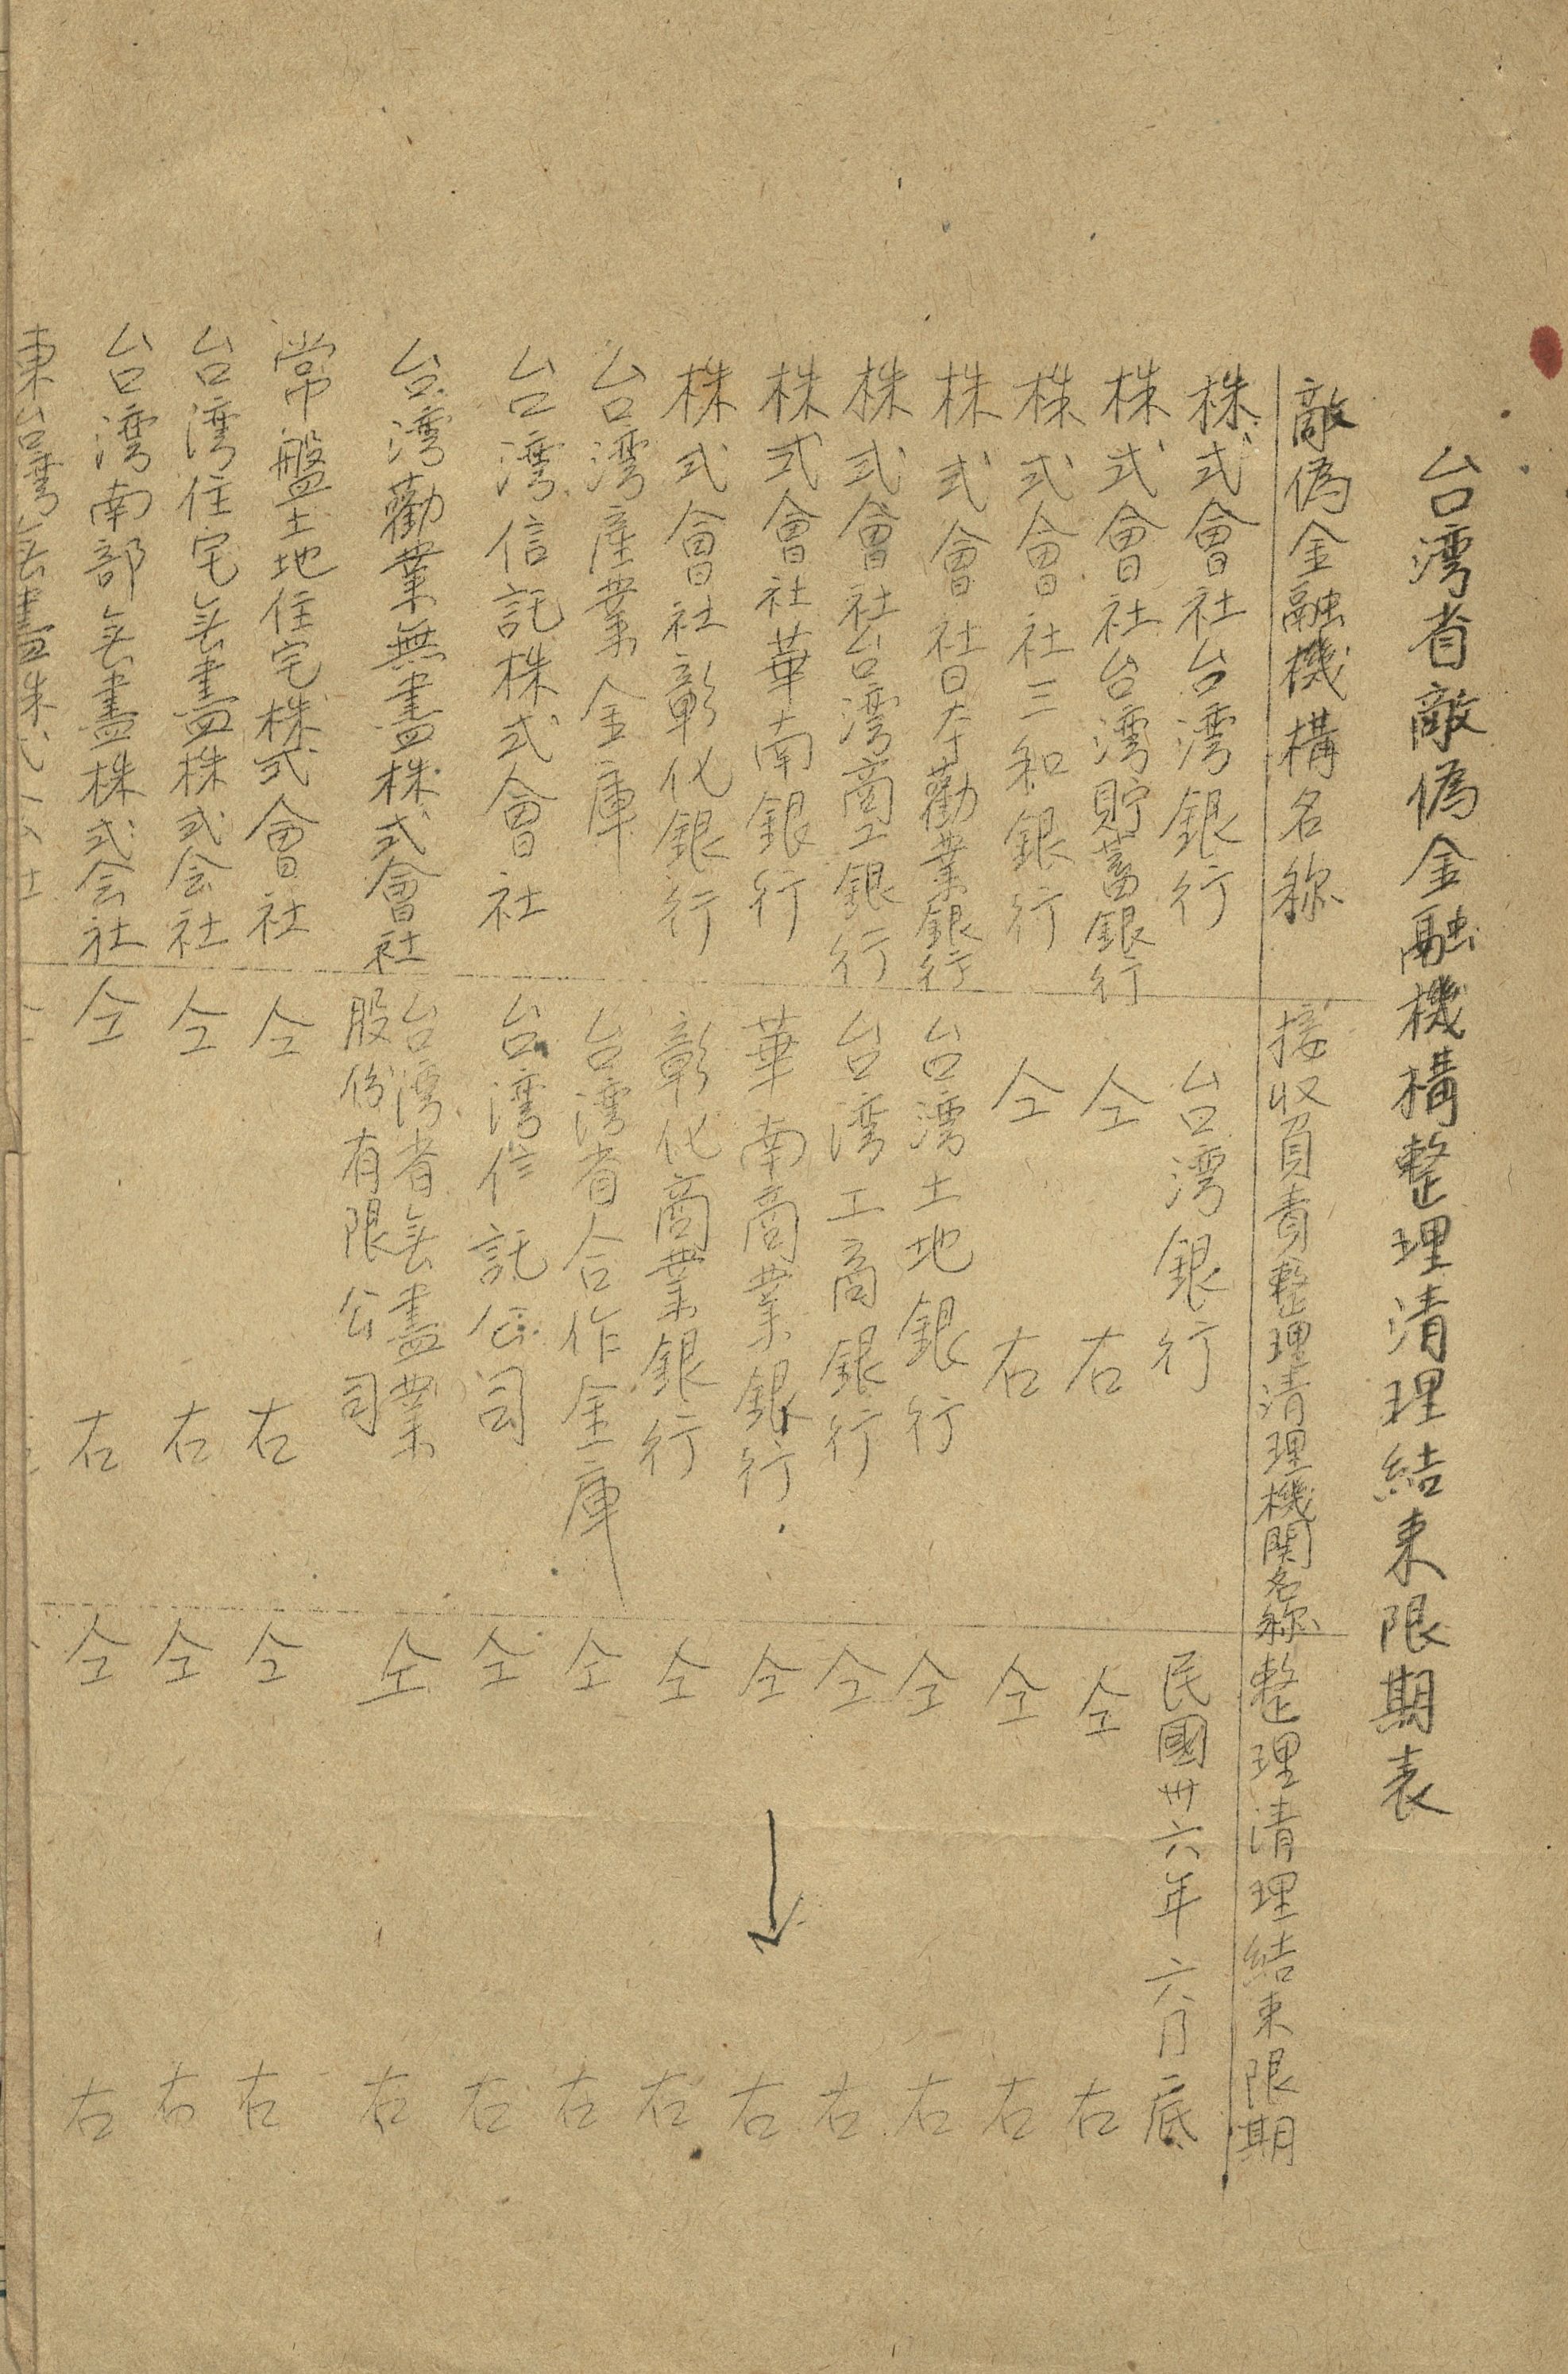 台湾省敵偽金融機構整理清理結束限期表
敵偽金融機構名称 接収負責整理清理機関名称 整理清理結束限期
株式會社台湾銀行 台湾銀行 民國卅六年六月底
株式會社台湾貯蓄銀行 仝右 仝右
株式會社三和銀行 仝右 仝右
株式會社日本勸業銀行 台湾土地銀行 仝右
株式會社台湾商工銀行 台湾工商銀行 仝右
株式會社華南銀行 華南商業銀行 仝右
株式會社彰化銀行 彰化商業銀行 仝右
台湾産業金庫 台湾省合作金庫 仝右
台湾信託株式會社 台湾信託公司 仝右
台湾勸業無盡株式會社 台湾省无盡業股份有限公司 仝右
常盤土地住宅株式會社 仝右 仝右
台湾住宅无盡株式会社 仝右 仝右
台湾南部无盡株式会社 仝右 仝右
東台湾无盡株式会社